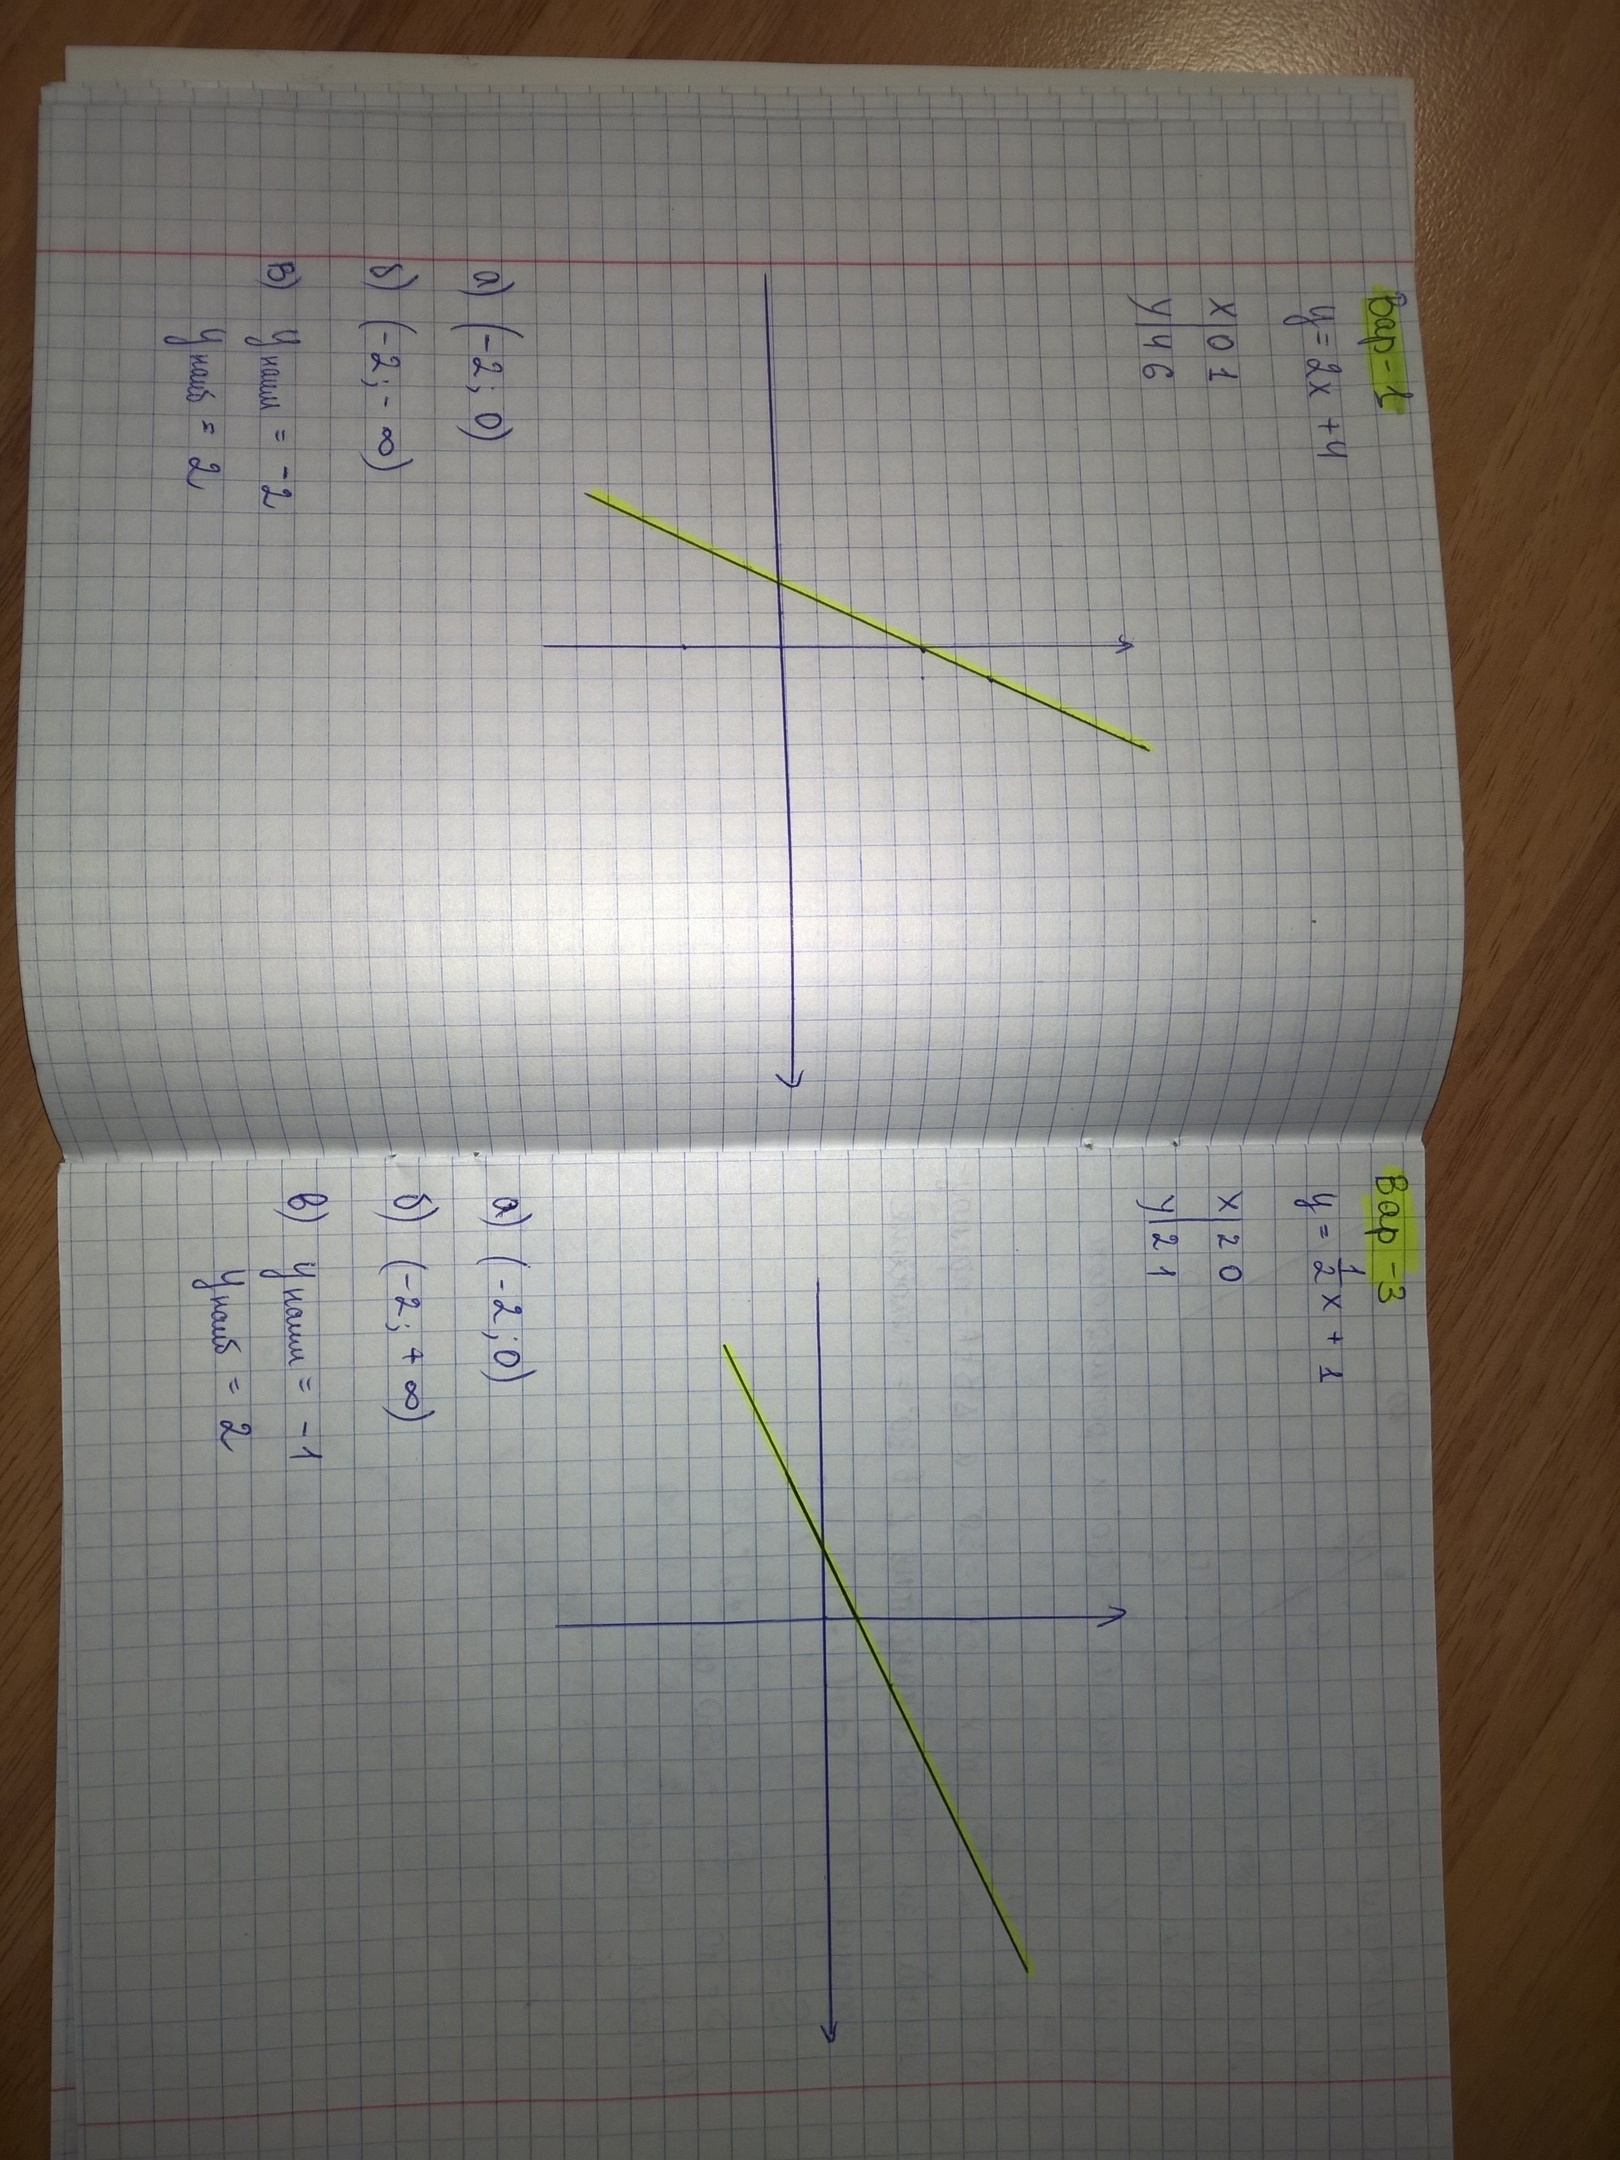 Вар - 1
y = 2x + 4
x | 0 1
y | 4 6
а) (-2; 0)
б) (-2; - ∞)
в) y наим = -2
y наиб = 2
Вар - 3
y = 1/2 x + 1
x | 2 0
y | 2 1
а) (-2; 0)
б) (-2; + ∞)
в) y наим = -1
y наиб = 2